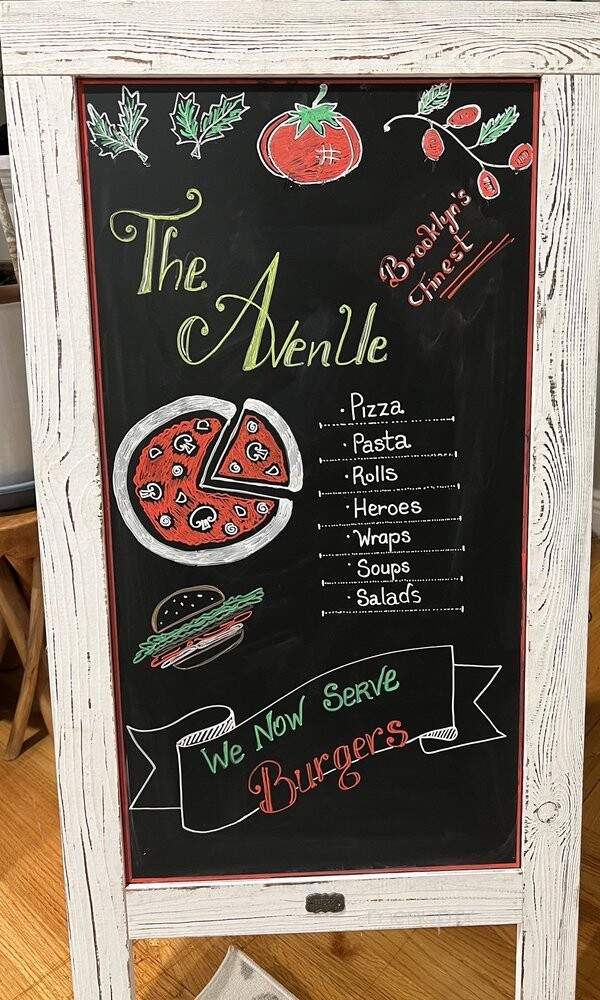 The
Avenue
Brooklyn's
Finest
· Pizza
· Pasta
· Rolls
· Heroes
· Wraps
· Soups
· Salads
We Now Serve
Burgers